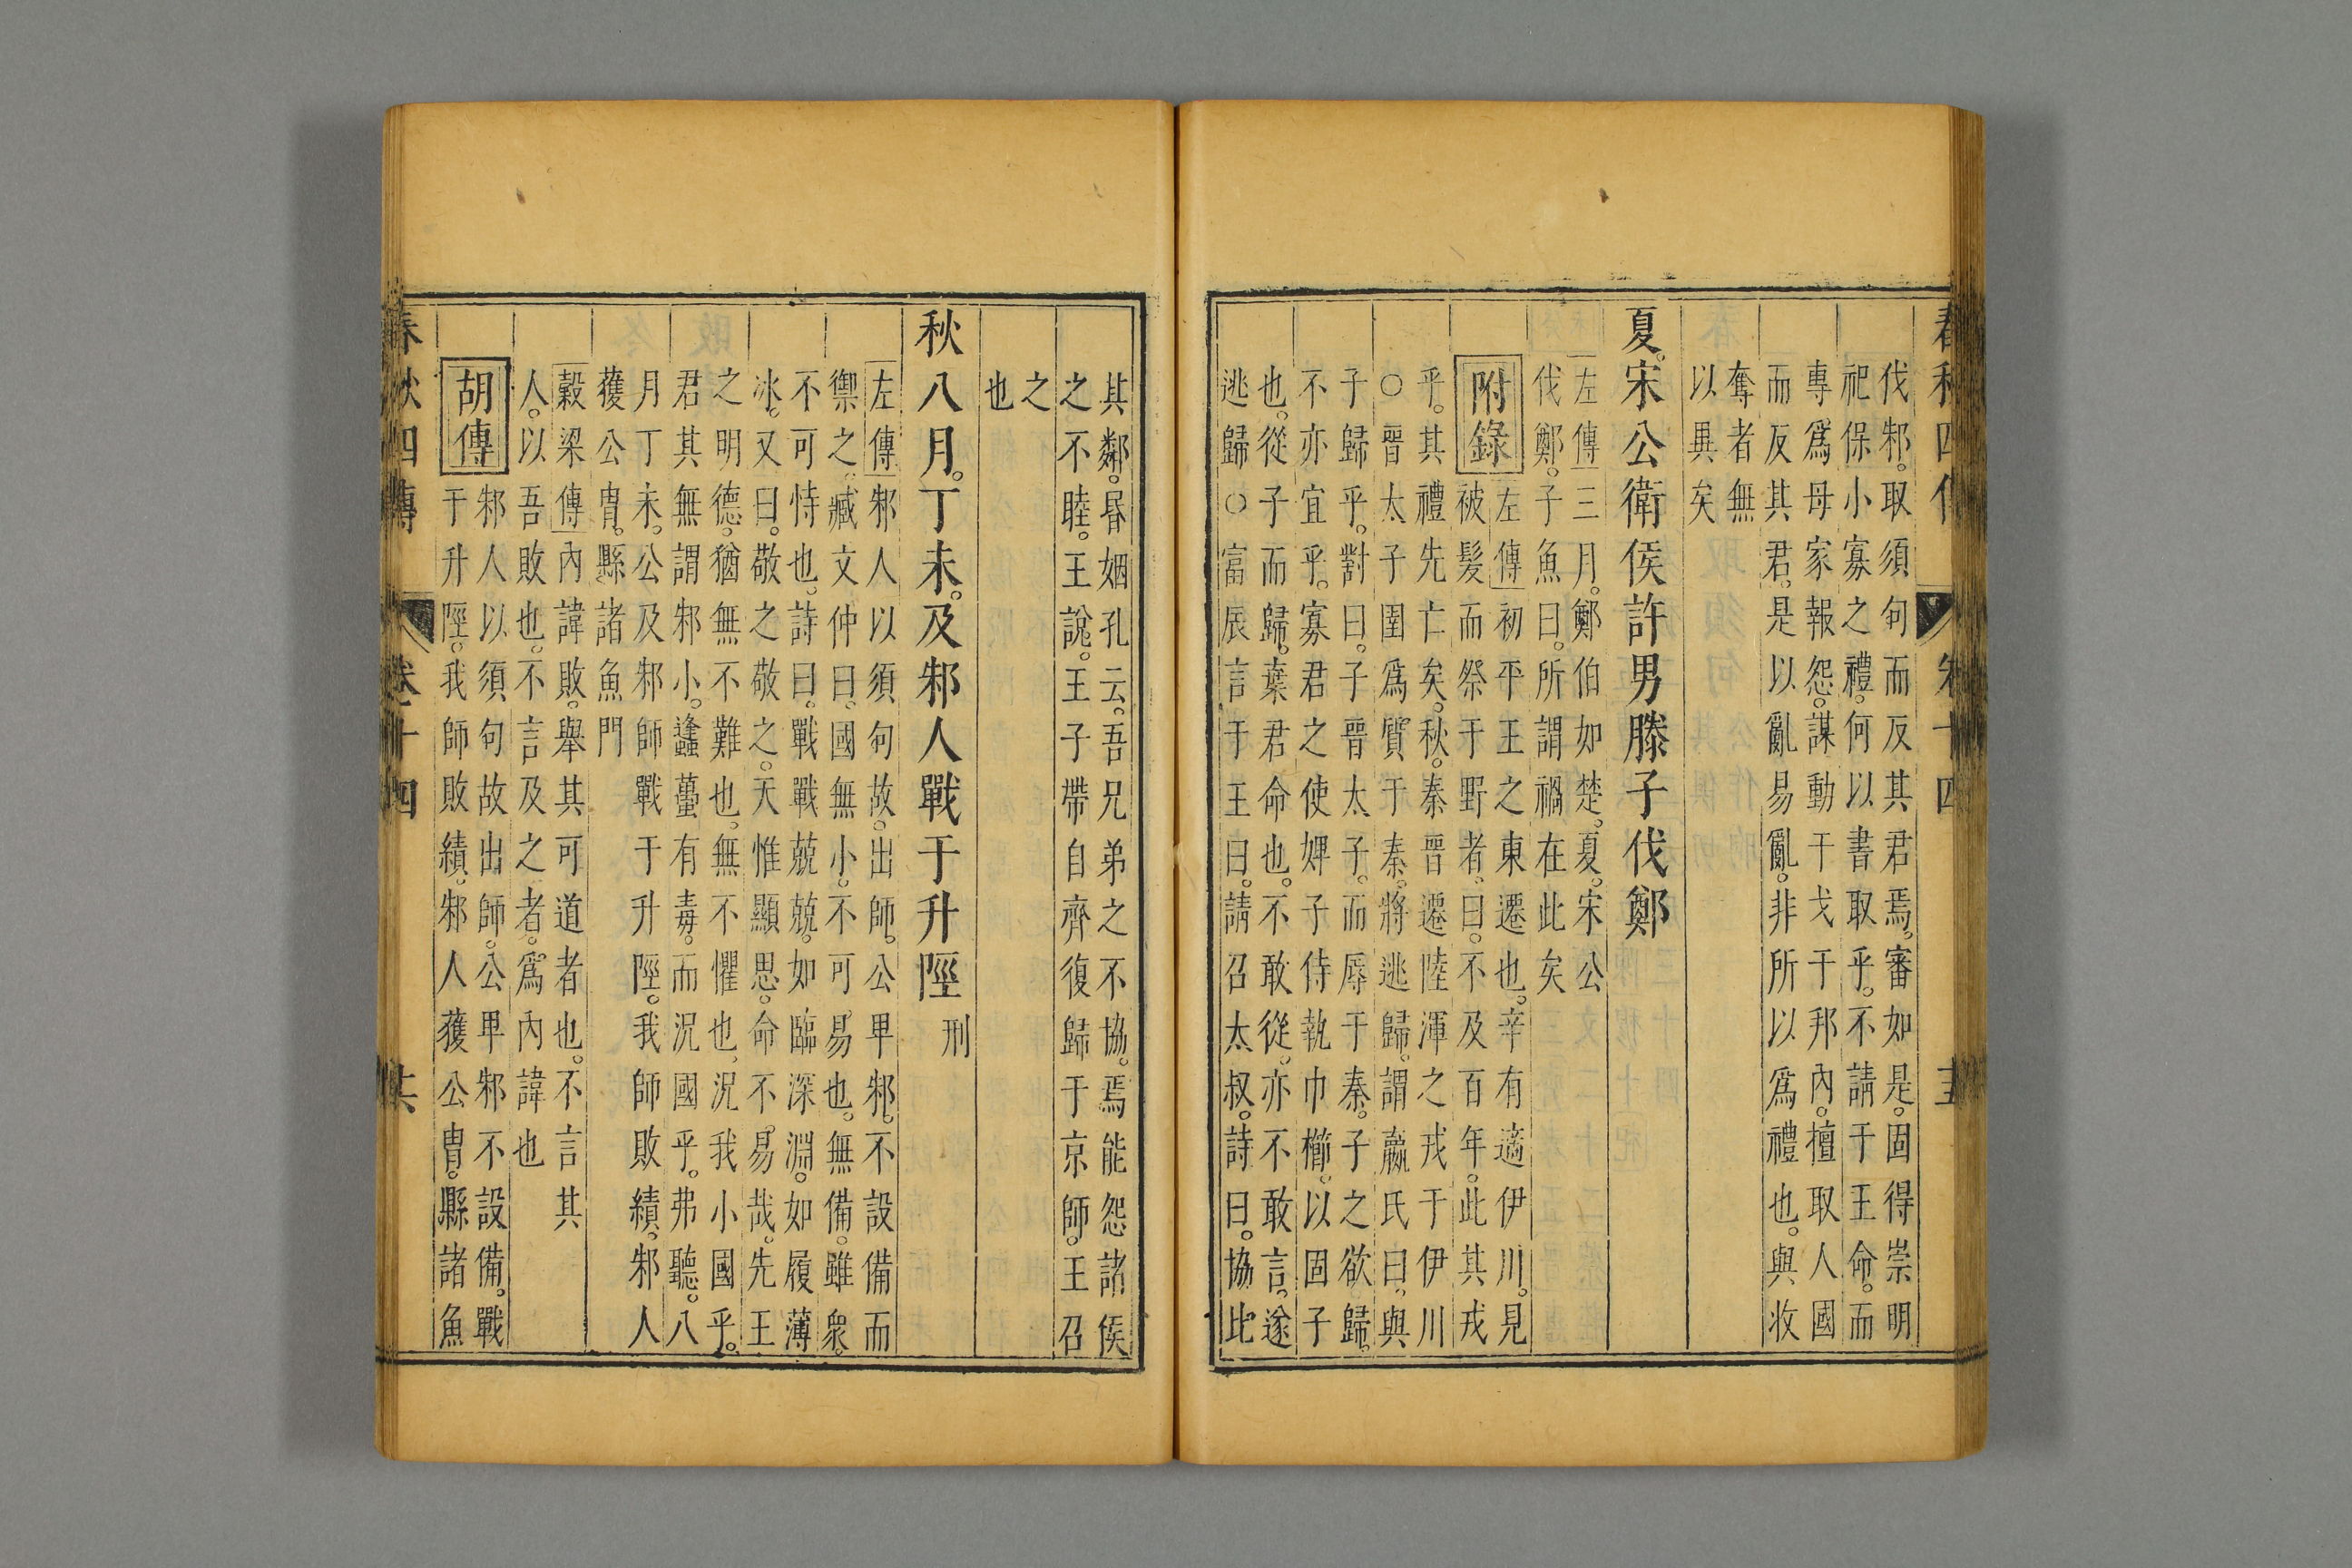 春秋四傳 卷十四 十五
伐邾。取須句而反其君焉。審如是。固得崇明
祀保小寡之禮。何以書取乎。不請于王命。而
專爲母家報怨。謀動干戈于邦內。擅取人國
而反其君。是以亂易亂。非所以爲禮也。與收
奪者無
以異矣
夏。宋公衛侯許男滕子伐鄭
左傳三月。鄭伯如楚。夏。宋公
伐鄭。子魚曰。所謂禍在此矣
附錄
左傳初平王之東遷也。辛有適伊川。見
被髮而祭于野者。曰。不及百年。此其戎
乎。其禮先亡矣。秋。秦晉遷陸渾之戎于伊川
○晉太子圉爲質于秦。將逃歸。謂嬴氏曰。與
子歸乎。對曰。子晉太子。而辱于秦。子之欲歸。
不亦宜乎。寡君之使婢子侍執巾櫛。以固子
也。從子而歸。棄君命也。不敢從。亦不敢言。遂
逃歸○富辰言于王曰。請召太叔。詩曰。協比
其鄰。昬姻孔云。吾兄弟之不協。焉能怨諸侯
之不睦。王說。王子帶自齊復歸于京師。王召
之
也
秋八月。丁未。及邾人戰于升陘 刑
左傳邾人以須句故。出師。公畢邾。不設備而
禦之。臧文仲曰。國無小。不可易也。無備。雖衆。
不可恃也。詩曰。戰戰兢兢。如臨深淵。如履薄
冰。又曰。敬之敬之。天惟顯思。命不易哉。先王
之明德。猶無不難也。無不懼也。況我小國乎。
君其無謂邾小。蠭蠆有毒。而況國乎。弗聽。八
月丁未。公及邾師戰于升陘。我師敗績。邾人
獲公胄。縣諸魚門
穀梁傳內諱敗。舉其可道者也。不言其
人。以吾敗也。不言及之者。爲內諱也
胡傳
邾人以須句故出師。公畢邾不設備。戰
于升陘。我師敗績。邾人獲公胄。縣諸魚
春秋四傳 卷十四 共